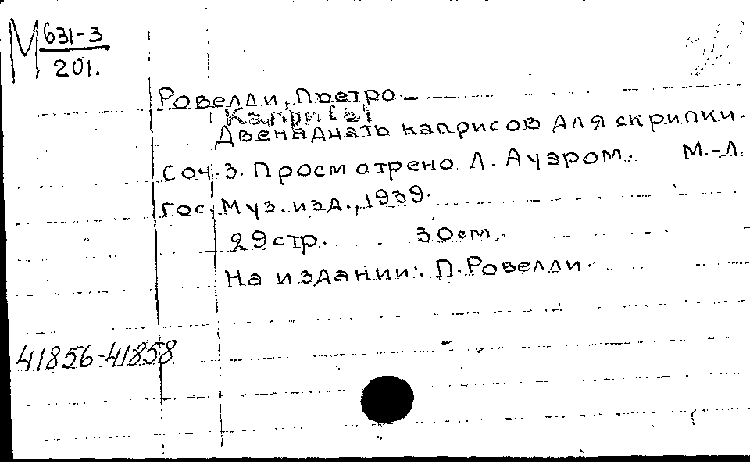 М 631-3
201.
Ровелли, Пьетро
[Каприсы]
Двенадцать каприсов для скрипки.
соч. 3. Просмотрено Л. Ауэром. М.-Л.
гос. Муз. изд., 1939.
29 стр. 30 см.
На издании: П. Ровелли.
41856-41858